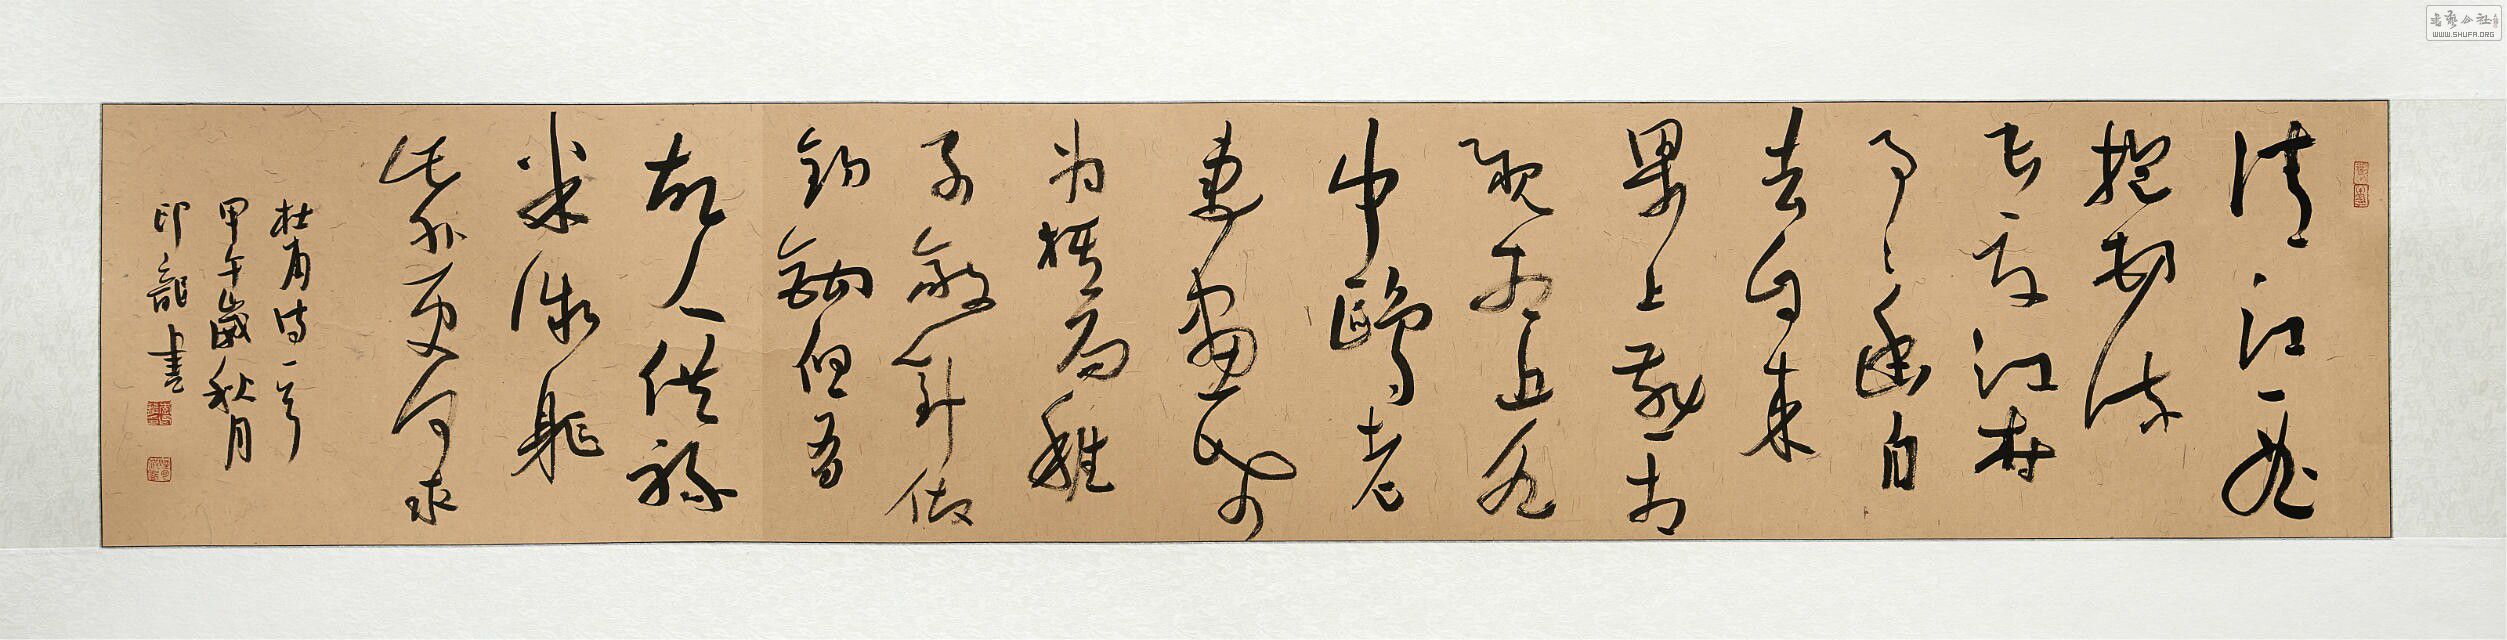 清江一曲
抱村流
長夏江村
事々幽自
去自来
梁上燕相
親相近水
中鷗老
妻畫紙
為棋局稚
子敲針做
釣鉤但有
故人供祿
米微軀
此外更何求
杜甫詩一首
甲午歲秋月
印龍書
書藝公社
WWW.SHUFA.ORG